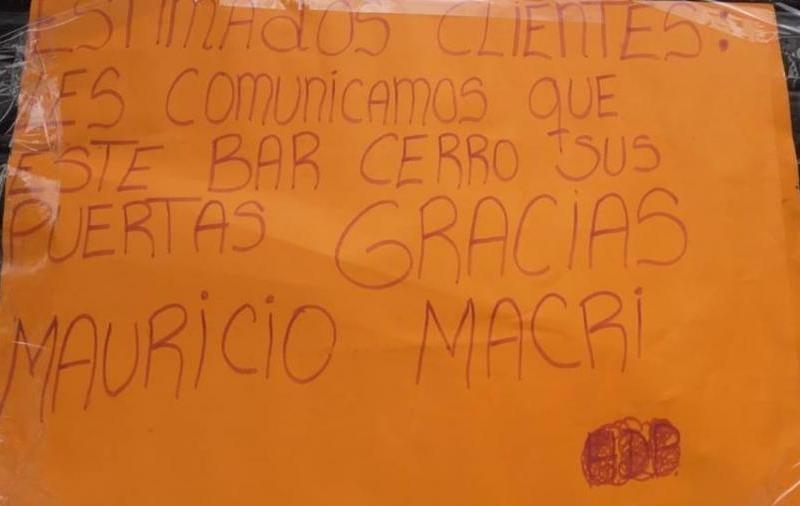 ESTIMAdOS CLIENTES:
LES COMUNiCAMOS QUE
ESTE BAR CERRO SUS
PUERTAS GRACiAS
MAURiCiO MACRi